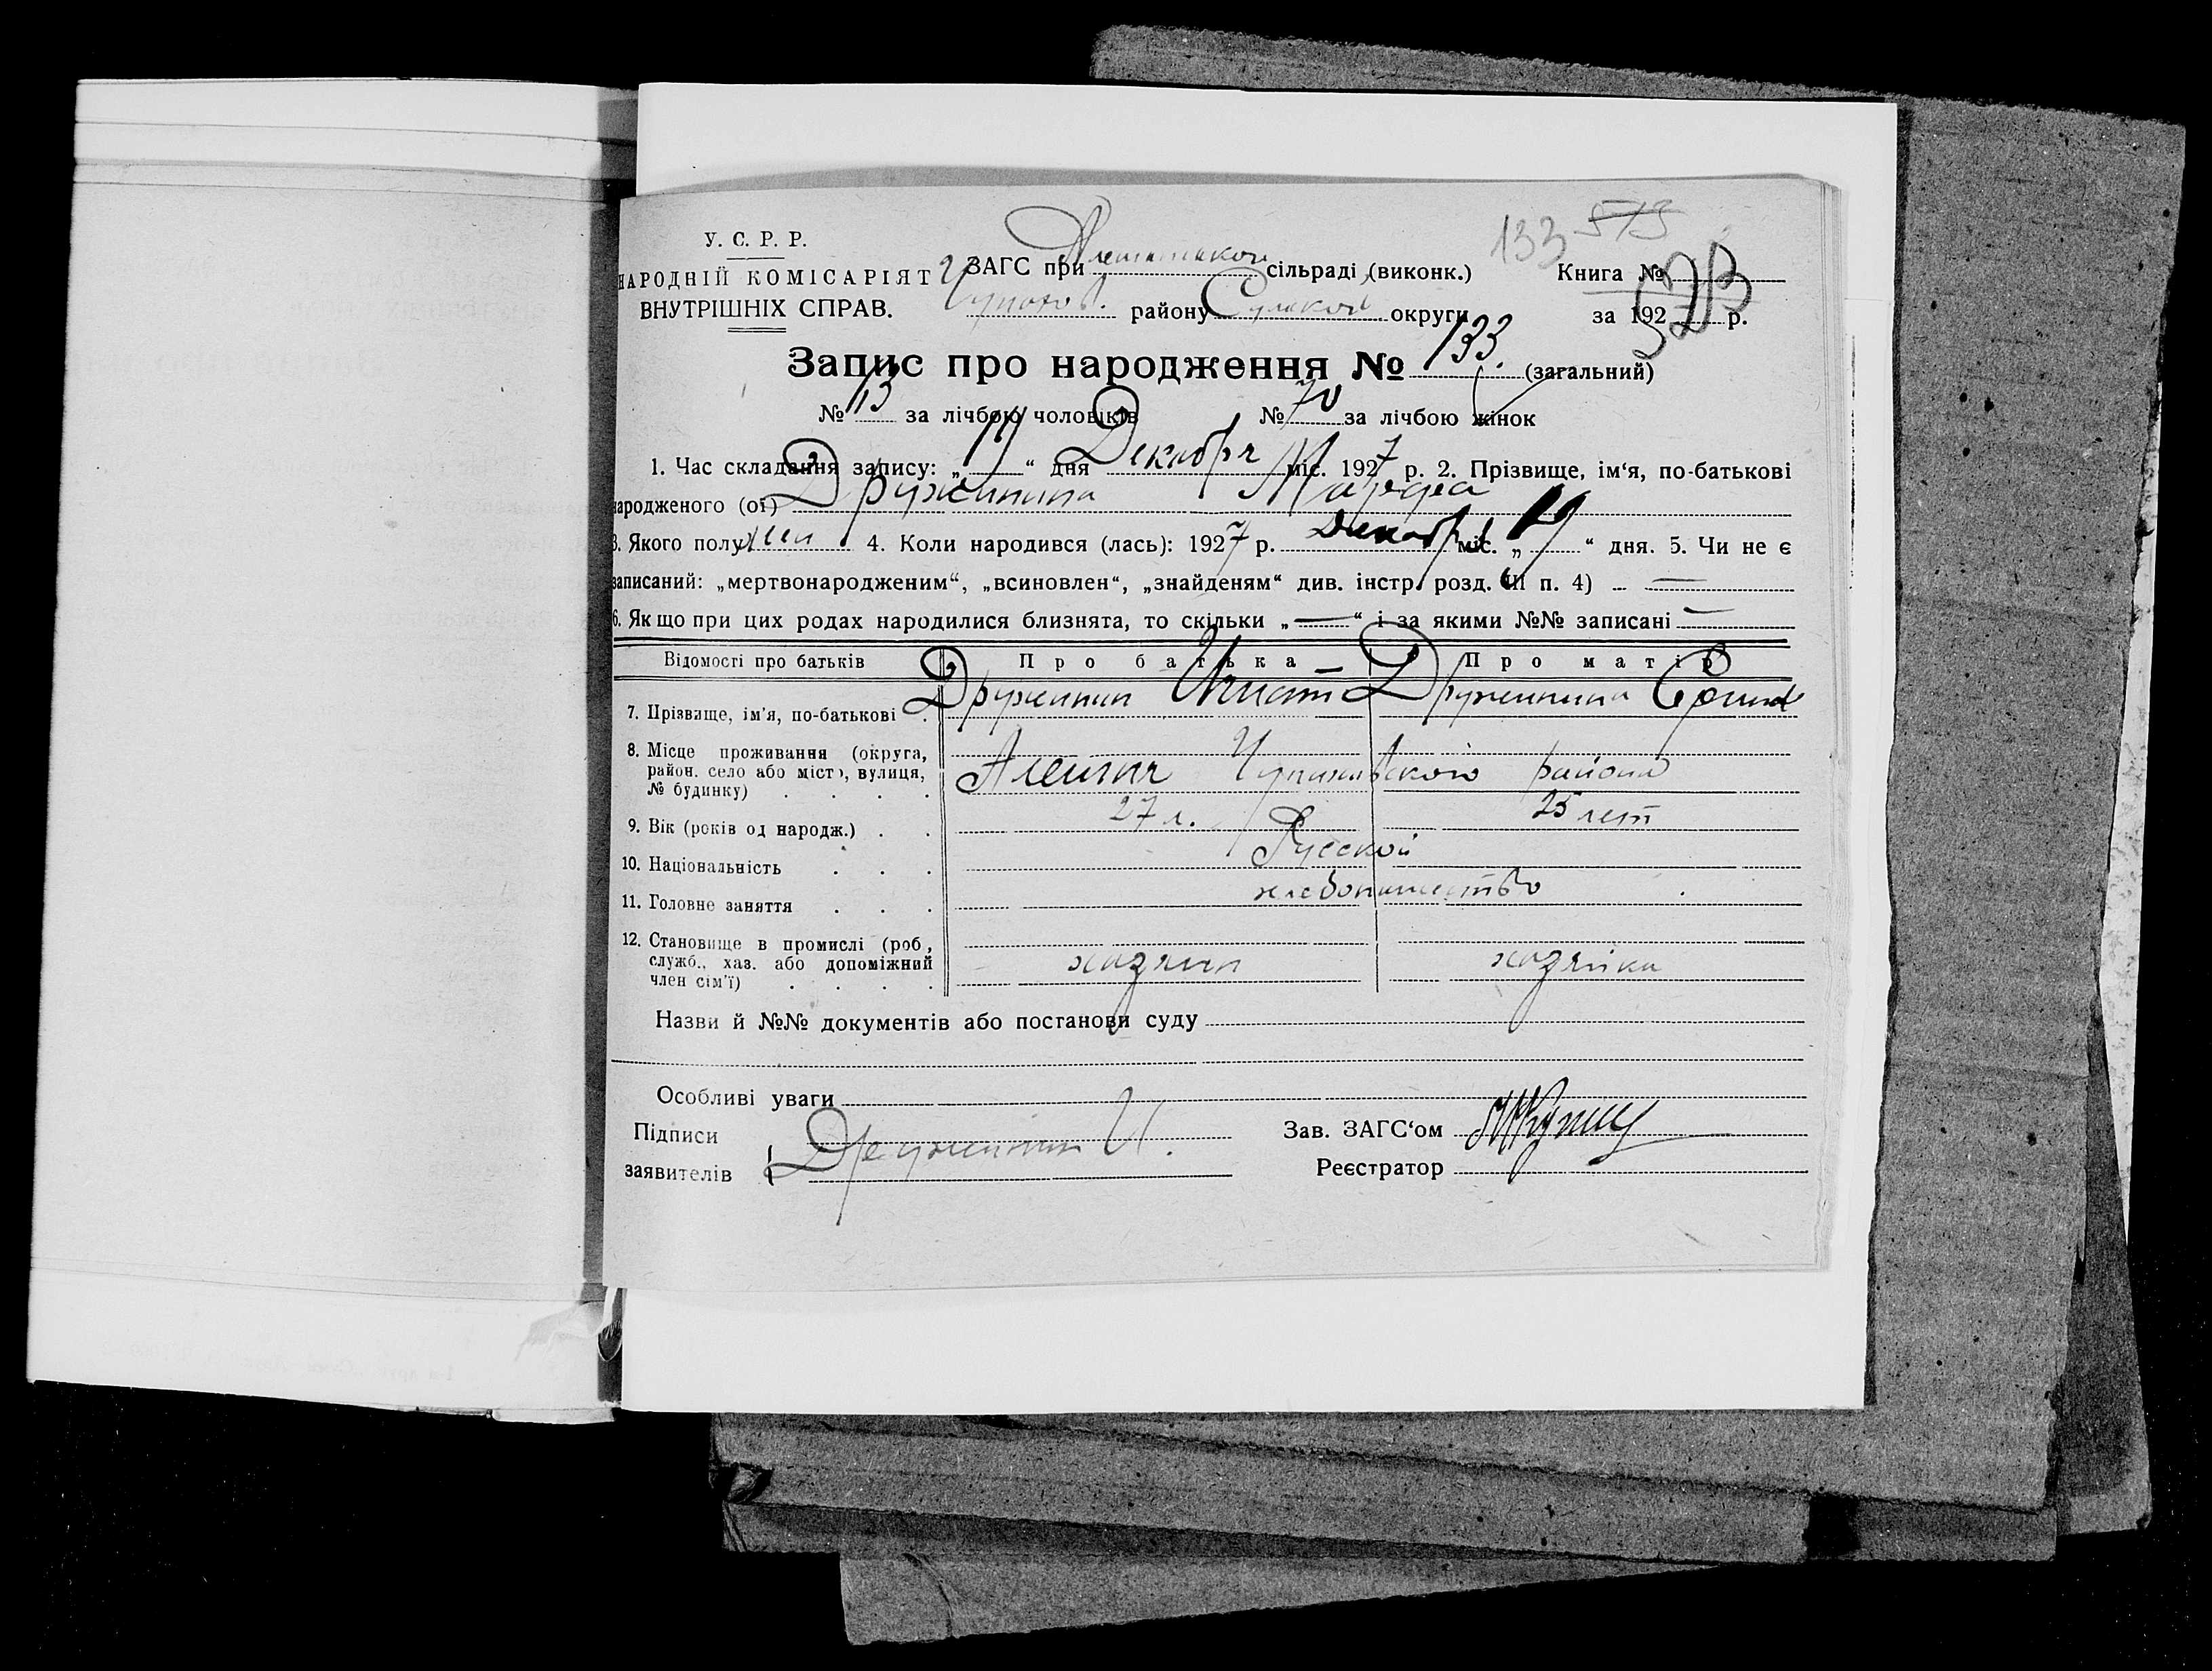 У. С. Р. Р.
НАРОДНІЙ КОМІСАРІЯТ
ВНУТРІШНІХ СПРАВ.
ЗАГС при сільраді (виконк.)
району округи
133 573
Книга №
573
за 192 р.
Запис про народження № 133. (загальний)
№ за лічбою чоловіків № 70 за лічбою жінок
1. Час складання запису: „ “ дня Декабря міс. 1927 р. 2. Прізвище, ім‘я, по-батькові
народженого (ої) Дружинина Марфа
3. Якого полу жен 4. Коли народився (лась): 1927 р. Декабря міс. „ “ дня. 5. Чи не є
записаний: „мертвонародженим“, „всиновлен“, „знайденям“ див. інстр. розд. III п. 4) — 
6. Якщо при цих родах народилися близнята, то скільки „—“ і за якими №№ записані —
Відомості про батьків Про батька Про матір
7. Прізвище, ім‘я, по-батькові Дружинин Игнат Дружинина
8. Місце проживання (округа,
район, село або місто, вулиця,
№ будинку) Алешня Чупаховского района
9. Вік (років од народж.) 27 л. 25 лет
10. Національність Русской
11. Головне заняття хлебопашество
12. Становище в промислі (роб.,
служб., хаз. або допоміжний
член сім‘ї) хозяин хозяйка
Назви й №№ документів або постанови суду
Особливі уваги
Підписи
заявителів Дружинин И.
Зав. ЗАГС‘ом
Реєстратор